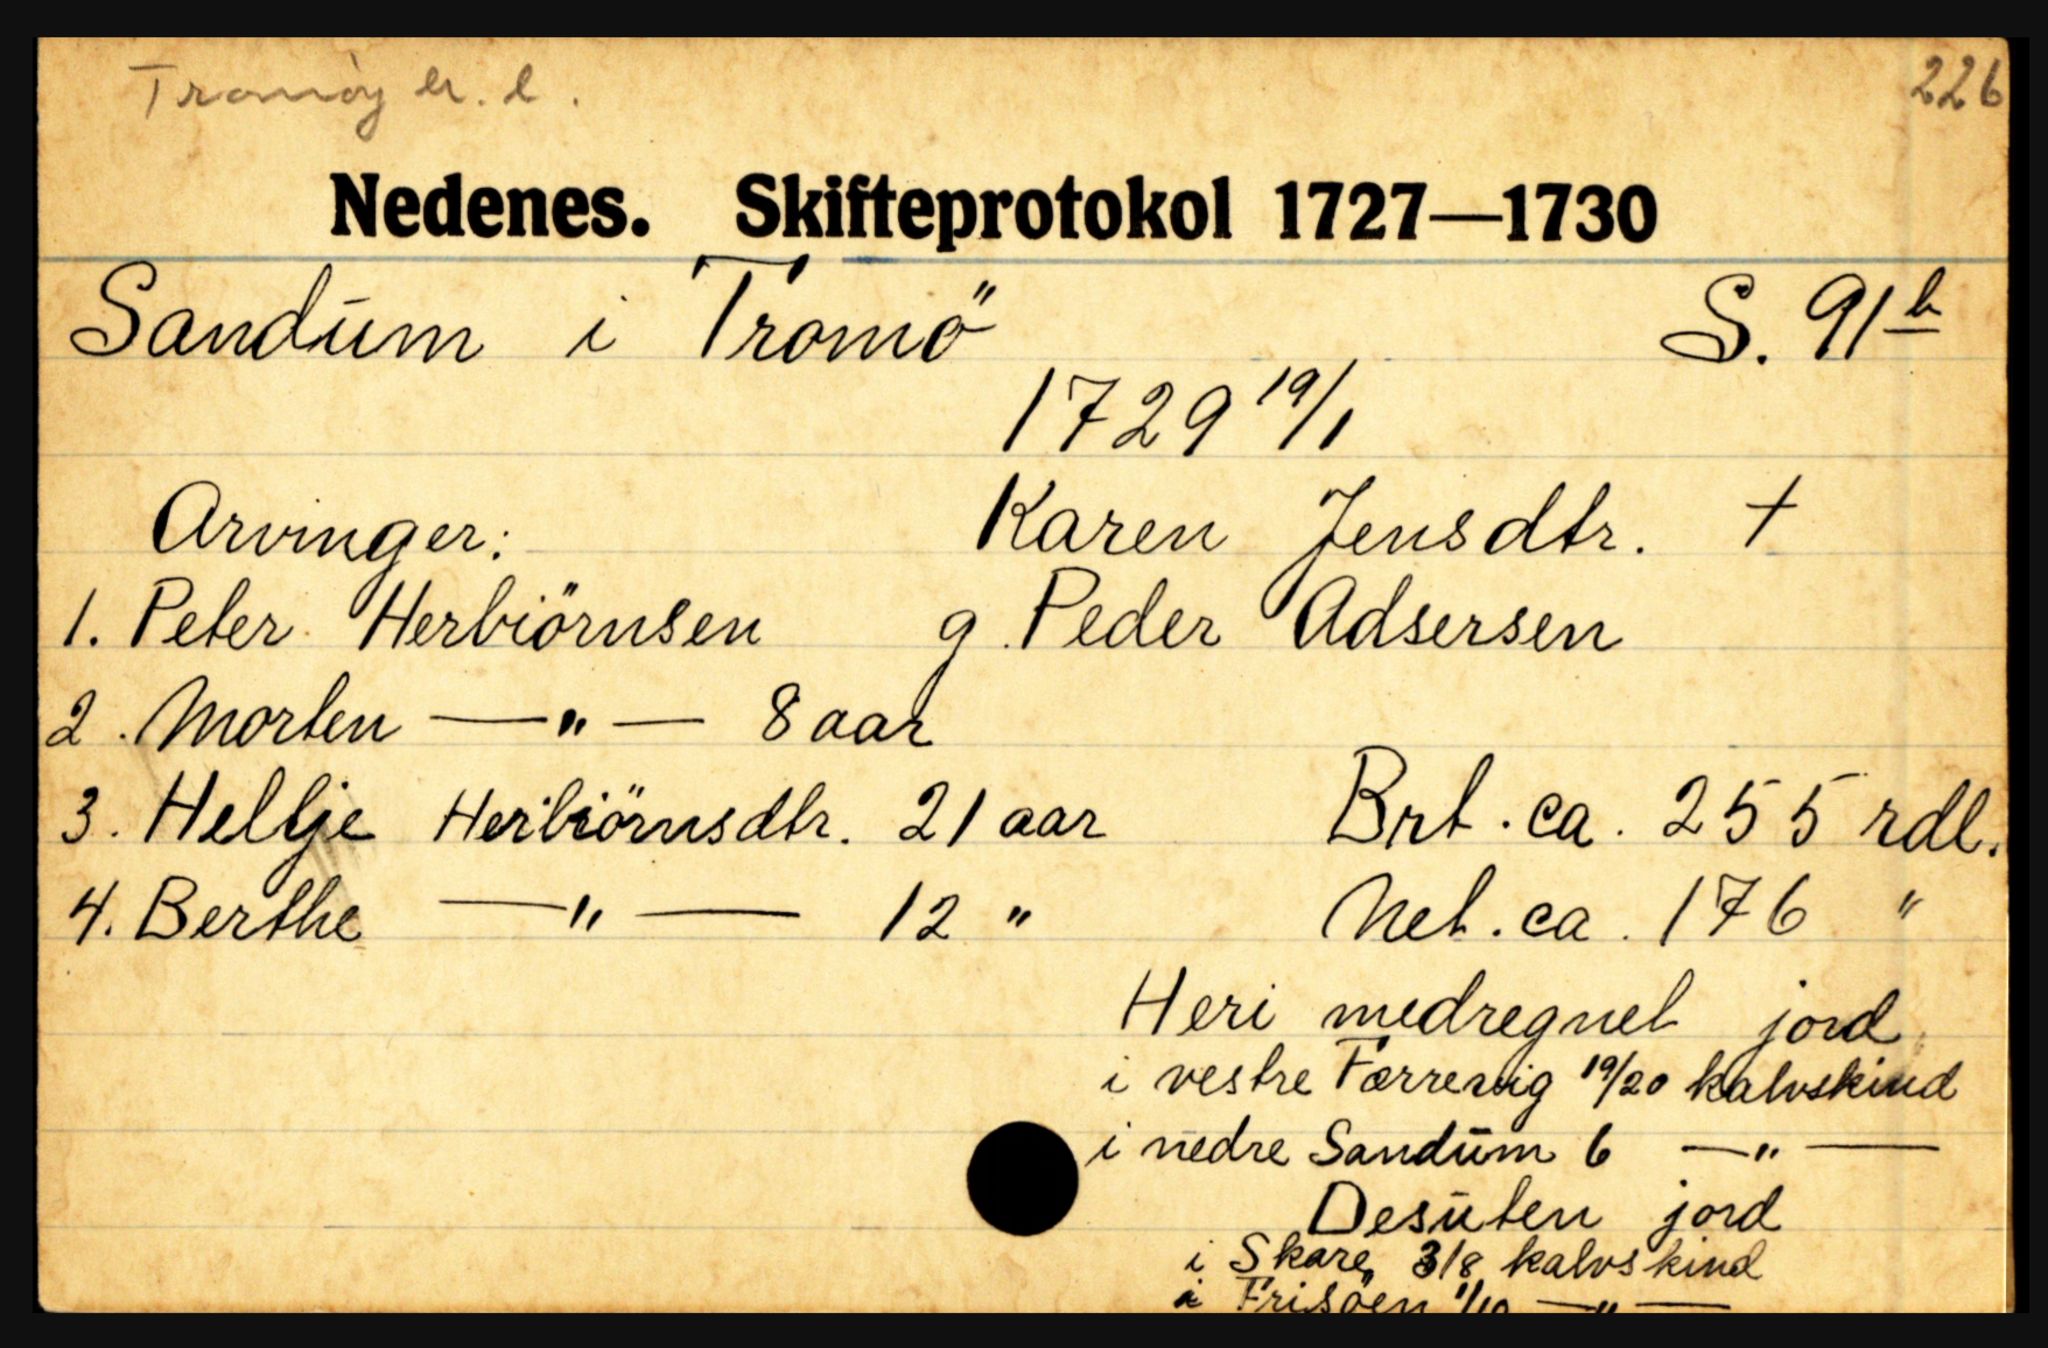 Tromøy 226
Nedenes. Skifteprotokol 1727—1730
Sandum i Tromö S. 91b
1729 19/1
Arvinger: Karen Jensdtr. +
1. Peter Herbiörnsen g. Peder Adsersen
2. Morten —„— 8 aar
3. Heltje Herbiörnsdtr. 21 aar Brt. ca. 255 rdl.
4. Berthe —„— 12 " Net. ca. 176 "
Heri medregnet jord
i vestre Færrevig 19/20 kalvskind
i nedre Sandum 6 —„—
Desuten jord
i Skare 3/8 kalvskind
i Frisöen 1/10 —„—